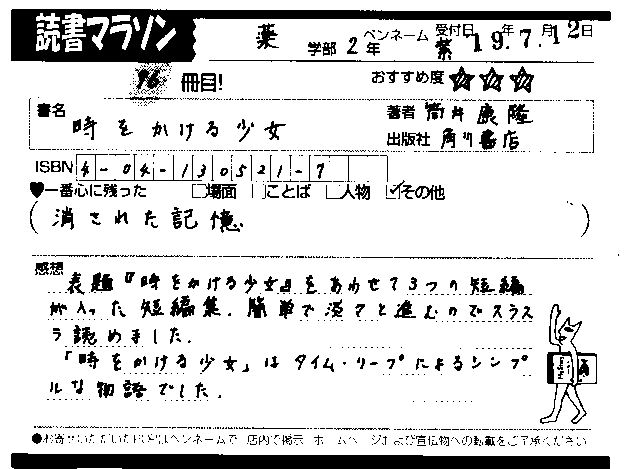 読書マラソン
薬 学部 2年 ペンネーム 紫 受付日 19年7月12日
96 冊目! おすすめ度 ☆☆☆
書名 時をかける少女
著者 筒井康隆
出版社 角川書店
ISBN 4-04-130521-7
♥一番心に残った □場面 □ことば □人物 ☑その他
(消された記憶)
感想
表題『時をかける少女』をあわせて3つの短編
が入った短編集。簡単で淡々と進むのでスラス
ラ読めました。
「時をかける少女」はタイム・リープによるシンプ
ルな物語でした。
●お寄せいただいたPOPはペンネームで、店内で掲示、ホームページおよび宣伝物への転載をご了承ください